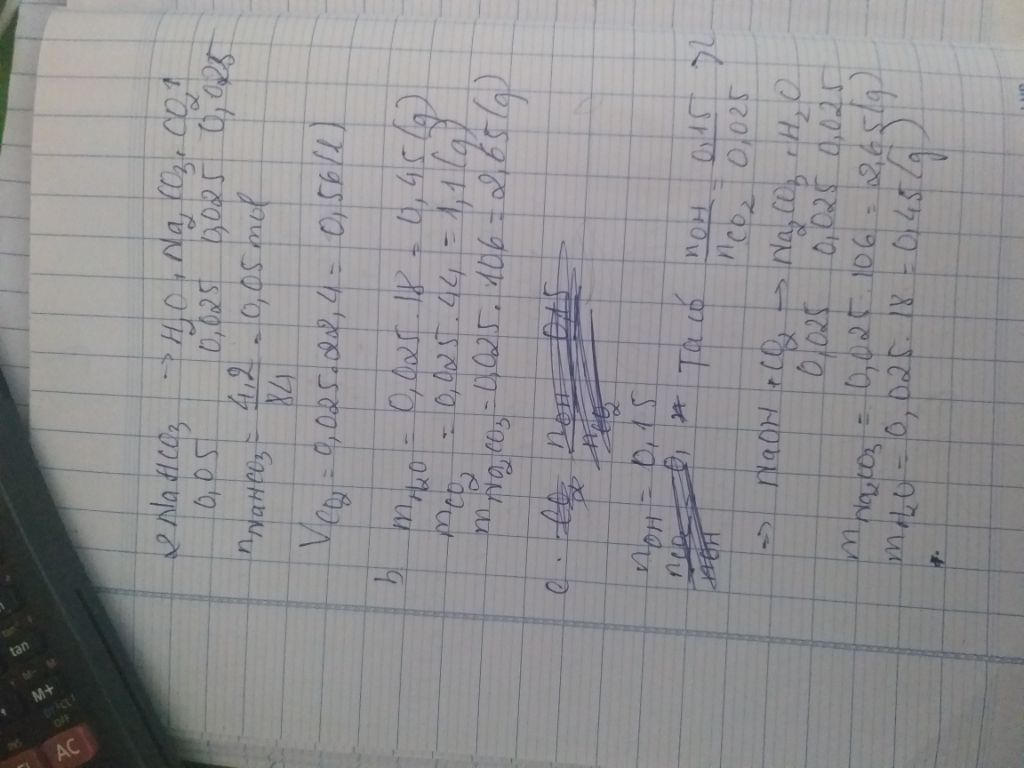 2NaHCO3 → H2O, Na2CO3, CO2↑
0,05 0,025 0,025 0,025
nNaHCO3 = 4,2/84 = 0,05 mol
VCO2 = 0,025.22,4 = 0,56(l)
b mH2O = 0,025.18 = 0,45(g)
mCO2 = 0,025.44 = 1,1(g)
mNa2CO3 = 0,025.106 = 2,65(g)
c.
nOH = 0,15
Ta có nOH/nCO2 = 0,15/0,025 >2
=> NaOH + CO2 → Na2CO3, H2O
0,025 0,025 0,025
mNa2CO3 = 0,025.106 = 2,65(g)
mH2O = 0,025.18 = 0,45(g)
tan
M+
OFF
AC